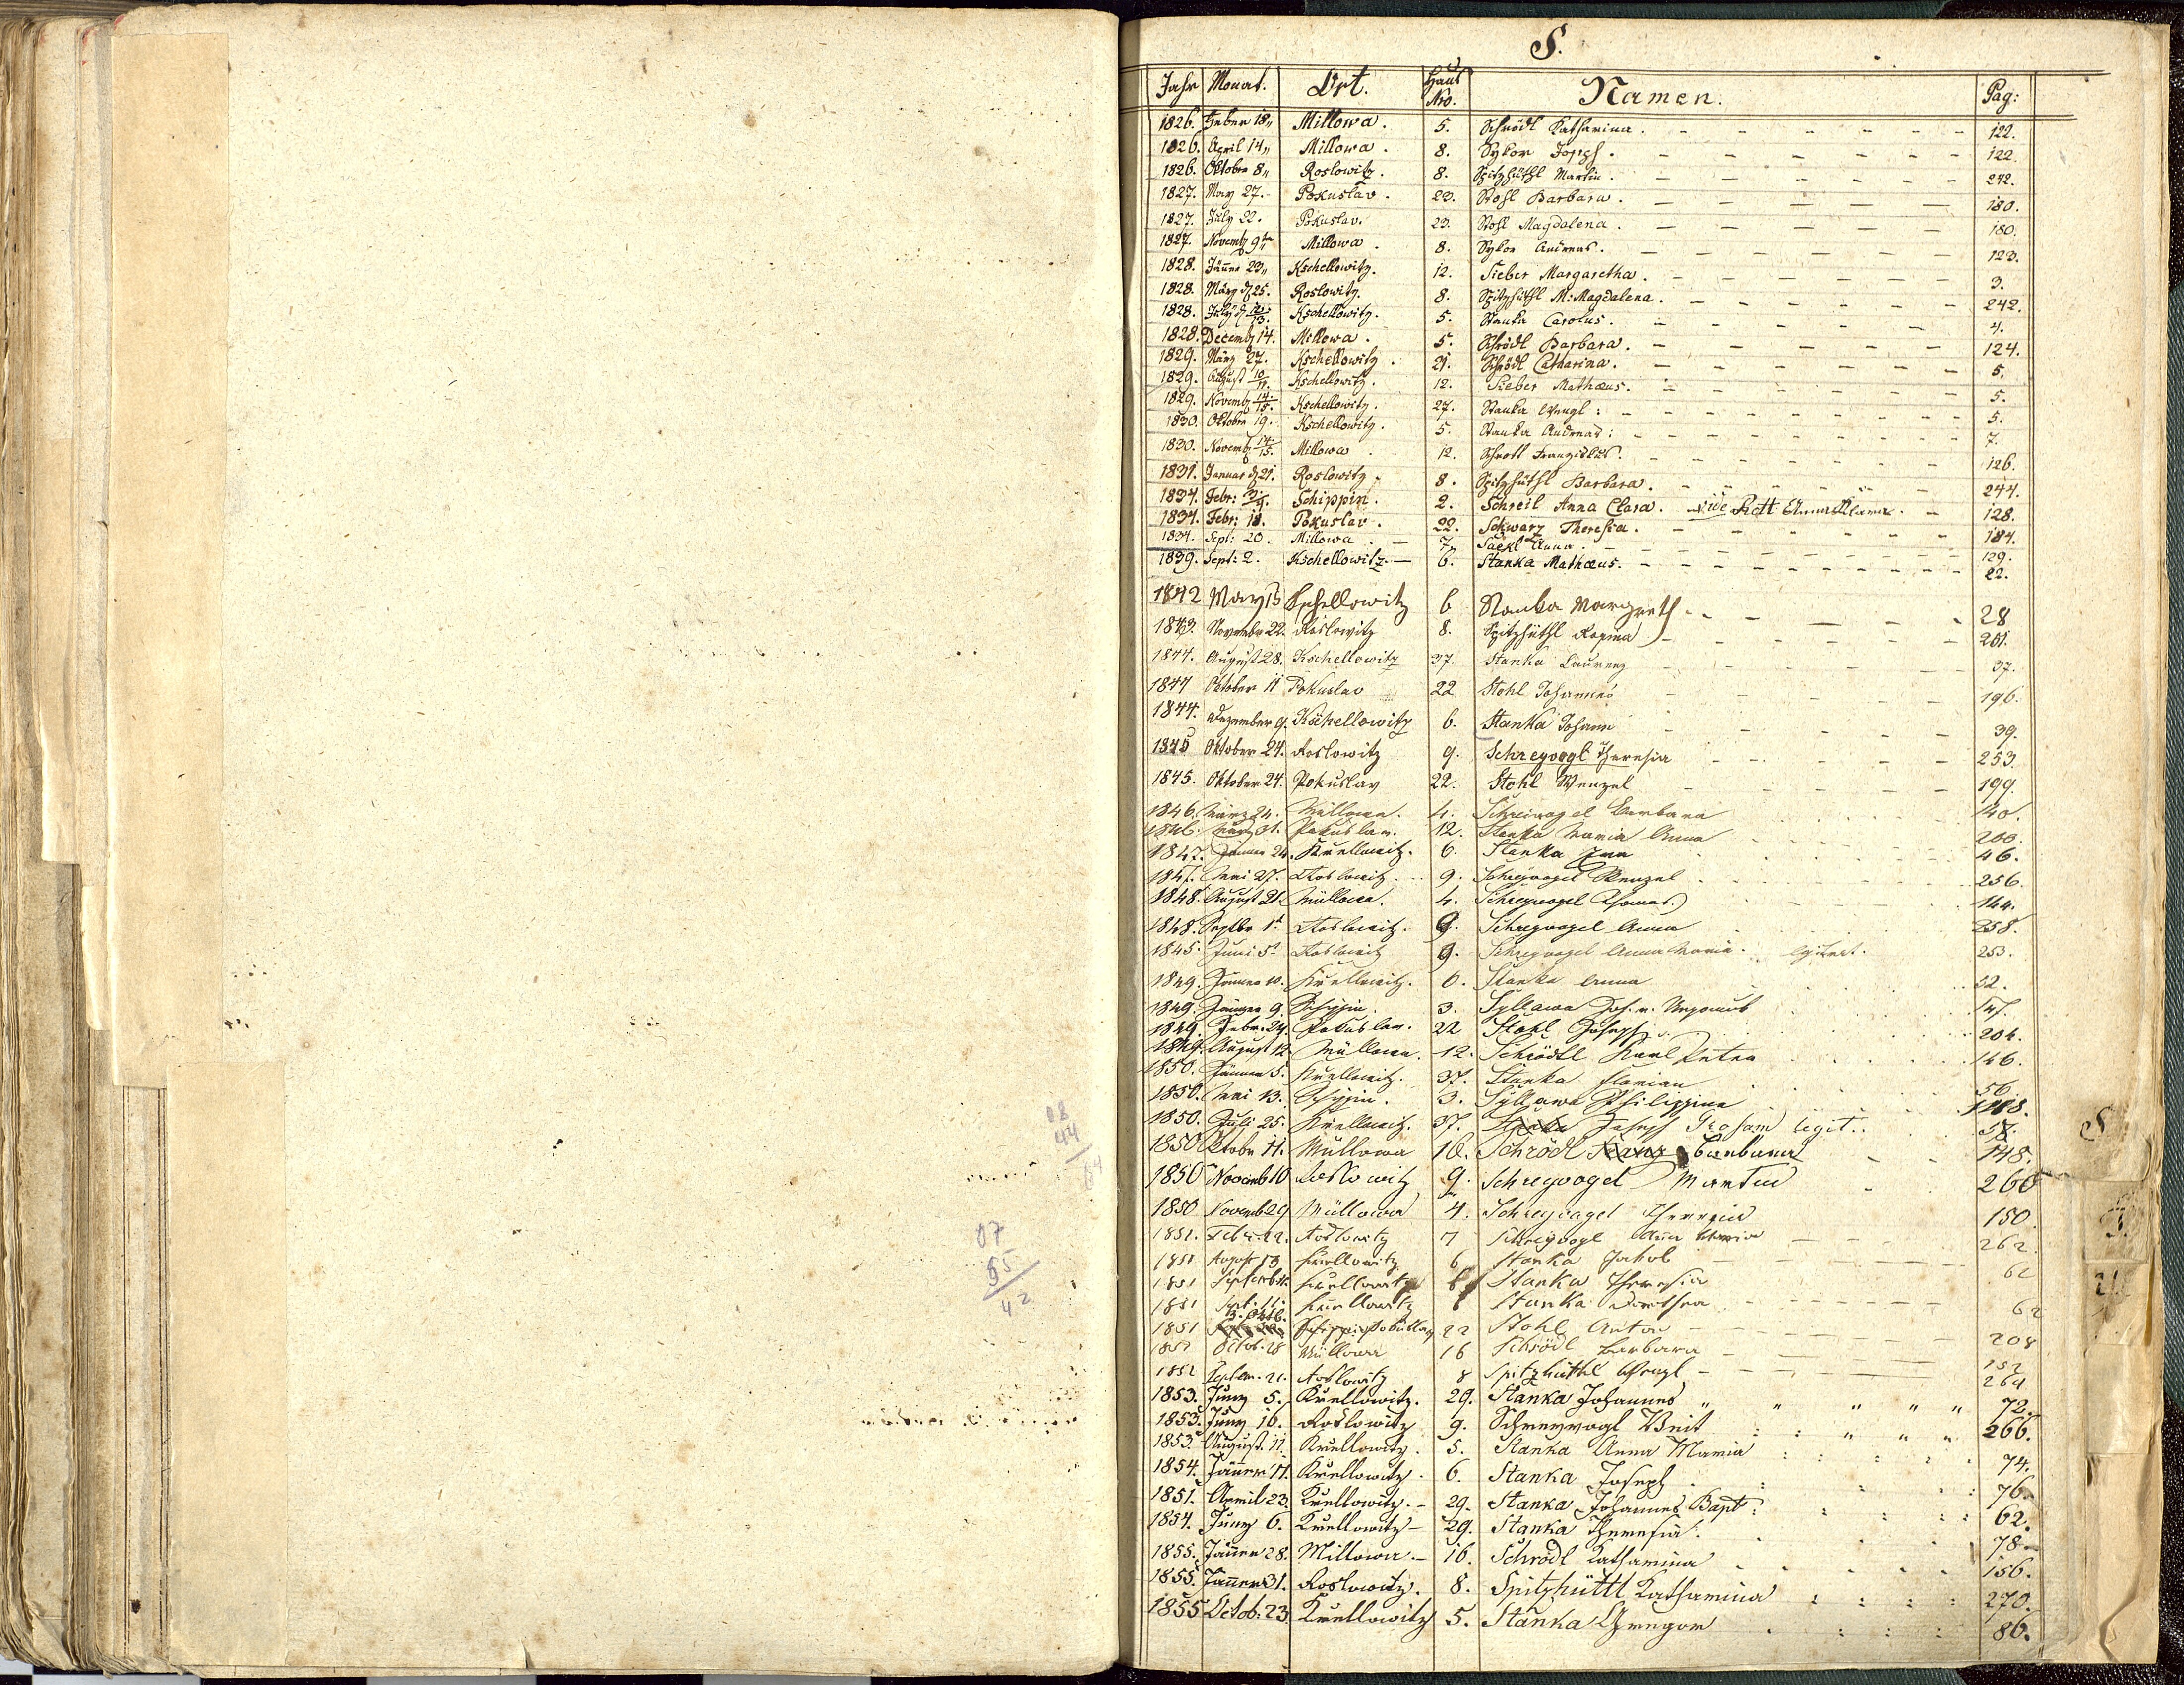 S.
Jahr Monat. Ort. Haus Nro. Namen. Pag:
1826. Feber 18„ Millowa. 5. Schrödl Katharina. 122.
1826. April 14„ Millowa. 8. Sykor Joseph. 122.
1826. Oktober 8„ Roslowitz. 8. Spitzhüthl Martin. 242.
1827. May 27. Pokuslav. 23. Stohl Barbara. 180.
1827. July 22. Pokuslav. 23. Stohl Magdalena. 180.
1827. Novemb 9 Millowa. 8. Sykor Andreas. 123.
1828. Jäner 23„ Kschellowitz. 12. Sieber Margaretha. 3.
1828. März d 25. Roslowitz. 8. Spitzhüthl M: Magdalena. 242.
1828. July d 12/13. Kschellowitz. 5. Stanka Carolus. 4.
1828. Decemb 14. Millowa. 5. Schrödl Barbara. 124.
1829. März 27. Kschellowitz. 21. Schrödl Catharina. 5.
1829. August 10/11. Kschellowitz. 12. Sieber Mathæus. 5.
1829. Novemb 14/15. Kschellowitz. 27. Stanka Wenzl: 5.
1830. Oktober 19. Kschellowitz. 5. Stanka Andreas: 7.
1830. Novemb 14/15. Millowa 12. Schrotl Franziskus. 126.
1831. Januar d 21. Roslowitz. 8. Spitzhüthl Barbara. 244.
1834. Febr: 3/9. Schippin. 2. Schreil Anna Clara. vide Rott Anna Klara. 128.
1834. Febr: 11. Pokuslav. 22. Schwarz Theresia. 184.
1834. Sept: 20. Millowa. 7. Säckl Anna. 129.
1839. Sept: 2. Kschellowitz. 6. Stanka Mathæus. 22.
1842 May 13 Kschellowitz 6 Stanka Margareth 28
1843. November 22. Roslowitz 8. Spitzhüthl 201.
1844. August 28. Kschellowitz 37. Stanka Laurenz 37.
1844 Oktober 11 Pokuslav 22 Stohl Johannes 196.
1844. Dezember 9. Kschellowitz 6. Stanka Johann 39.
1845 Oktober 24. Roslowitz 9. Schreyvogl Theresia 253.
1845. Oktober 24. Pokuslav 22. Stohl Wenzel 199.
1846. März 24. Müllowa. 4. Schreivogel Barbara 140.
1846. März 31. Pokuslav. 12. Stanka Maria Anna 200.
1847. Jänner 24. Křellowitz. 6. Stanka 46.
1847. Mai 27. Roslowitz. 9. Schreyvogel Wenzel 256.
1848. August 21. Müllowa. 4. Schreyvogel Thomas. 144.
1848. Septbr 1. Roslowitz. 9. Schreyvogel Anna 258.
1845. Juni 5. Roslowitz 9. Schreyvogel Anna Maria. legitimt. 253.
1849. Jänner 10. Křellowitz. 6. Stanka Anna 52.
1849. Jänner 9. Schippin. 3. Syllawa Joh. v. Nepomuk
1849. Febr. 24. Pokuslav. 22 Stohl Joseph 204.
1849. August 12. Müllowa. 12. Schrödl Karl Anton 146.
1850. Jänner 5. Křellowitz. 37. Stanka Florian 56
1850. Mai 13. Schippin. 3. Syllawa Philippina 148.
1850. Juli 25. Křellowitz. 37. Joseph legit.
1850 Oktobr 11. Müllowa 16. Schrödl Barbara 148.
1850 Novemb 10 Roslowitz 9. Schreyvogel Martin 260
1850 Novemb 29 Müllowa 4. Schreyvogel Theresia 150.
1851. Feb. 22. Roslowitz 7 Schreyvogl Anna Maria 262.
1851 August 13 Křellowitz 6 Stanka Jakob 62
1851 Septemb Křellowitz 6 Stanka Theresia
1851 Sept. 11. Křellowitz 6 Stanka Dorothea 62
1851 13. Oktb. Pokuslav 22 Stohl Anton 208
1852 Octob. 28 Müllowa 16 Schrödl Barbara 152
1852 Septem. 21. Roslowitz 8 Spitzhüthl Wenzl 264
1853. Juny 5. Křellowitz. 29. Stanka Johannes 72.
1853. Juny 16. Roslowitz 9. Schreyvogl Veit 266.
1853. August. 11. Křellowitz. 5. Stanka Anna Maria 74.
1854. Jäner 17. Křellowitz. 6. Stanka Joseph 76.
1851. April 23. Křellowitz. 29. Stanka Johannes Bapt: 62.
1854. Juny 6. Křellowitz 29. Stanka Theresia. 78
1855. Jäner 28. Millowa. 16. Schrödl Katharina 156.
1855. Jäner 31. Roslowitz. 8. Spitzhüttl Katharina 270.
1855 Octob. 23 Křellowitz 5. Stanka Gregor 86.
08
44
84
07
55
42
S